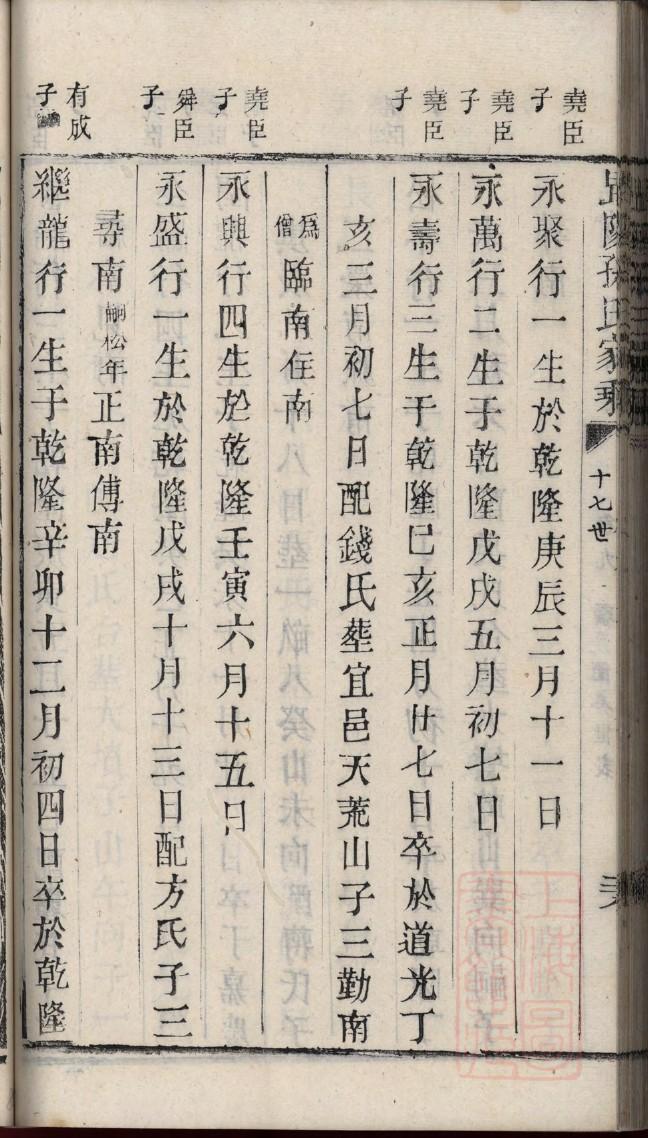 陽孫氏家乘
十七世
堯臣子
永聚行一生於乾隆庚辰三月十一日
堯臣子
永萬行二生于乾隆戊戌五月初七日
堯臣子
永壽行三生于乾隆巳亥正月廿七日卒於道光丁
亥三月初七日配錢氏塟宜邑天荒山子三勤南
爲僧臨南住南
堯臣子
永興行四生於乾隆壬寅六月十五日
舜臣子
永盛行一生於乾隆戊戌十月十三日配方氏子三
尋南嗣松年正南傅南
有成子
繼龍行一生于乾隆辛卯十二月初四日卒於乾隆